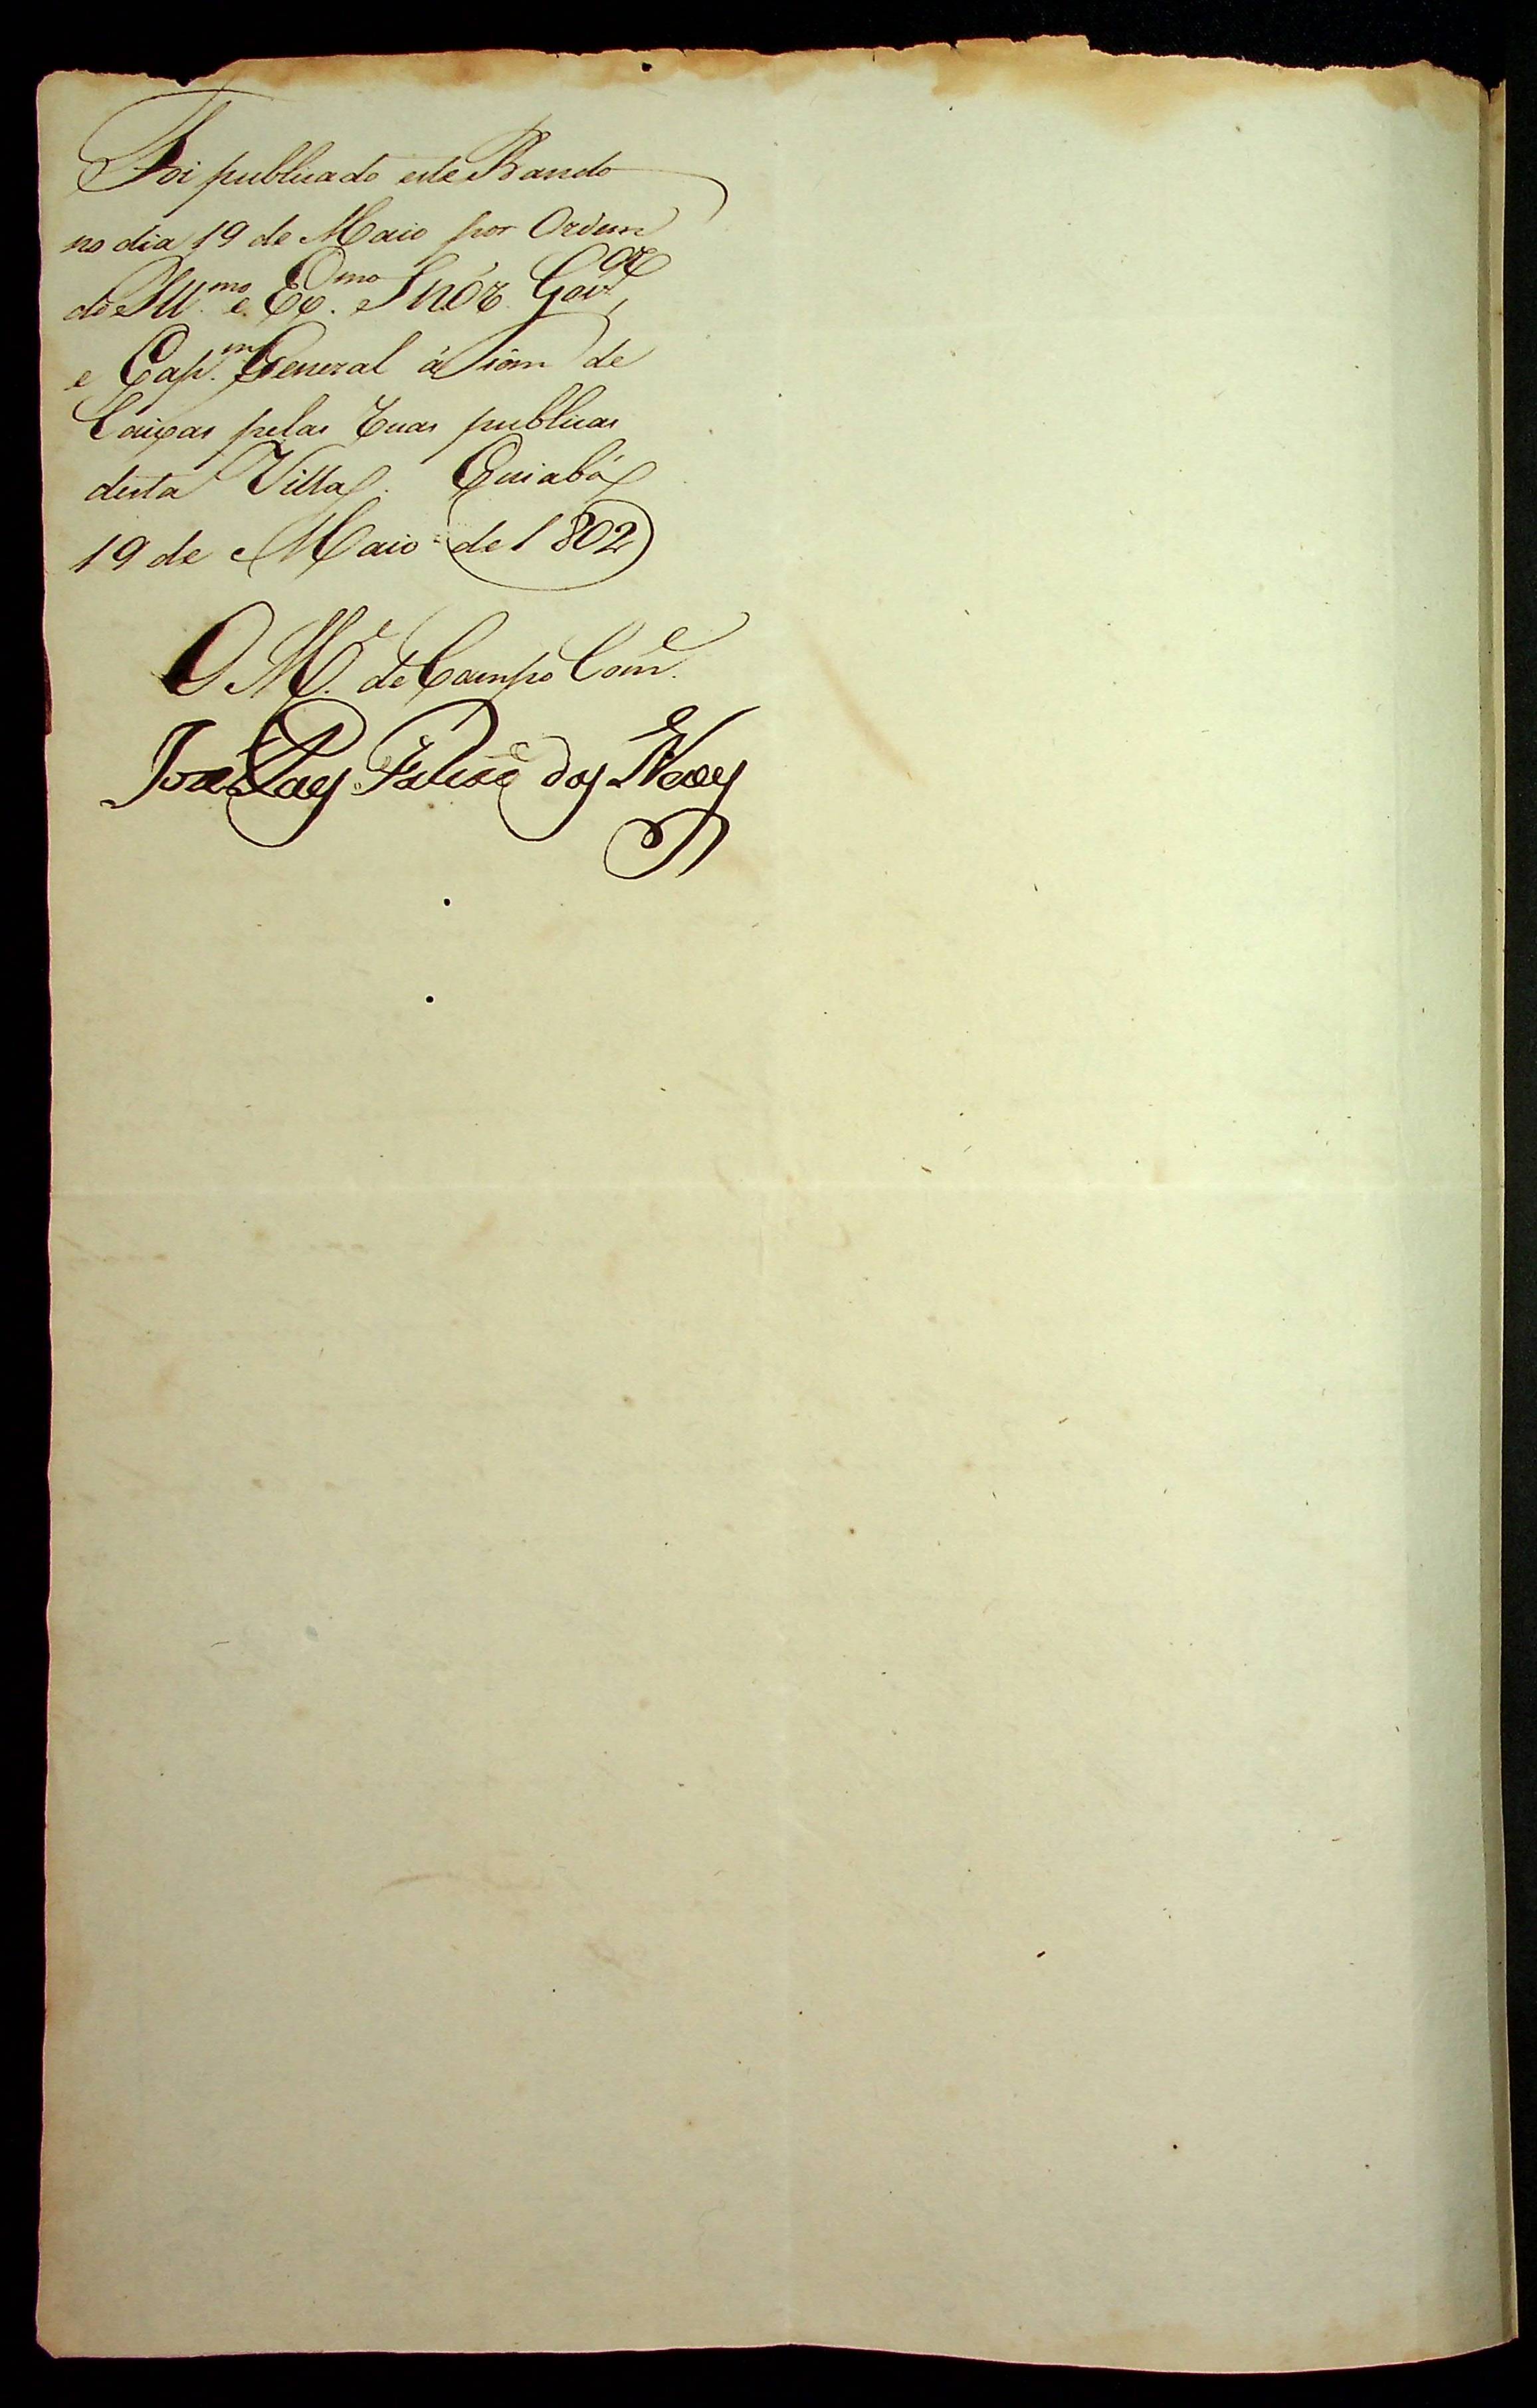 Foi publicado este Bando
no dia 19 de Maio por Ordem
do Ill.mo e Ex.mo Snór. Gov.or,
e Cap.m General á som de
Caixas pelas ruas publicas
desta Villa. Cuiabá
19 de Maio de 1802
O M.e de Campo Com.e
Joze Paes Falcaõ das Neves